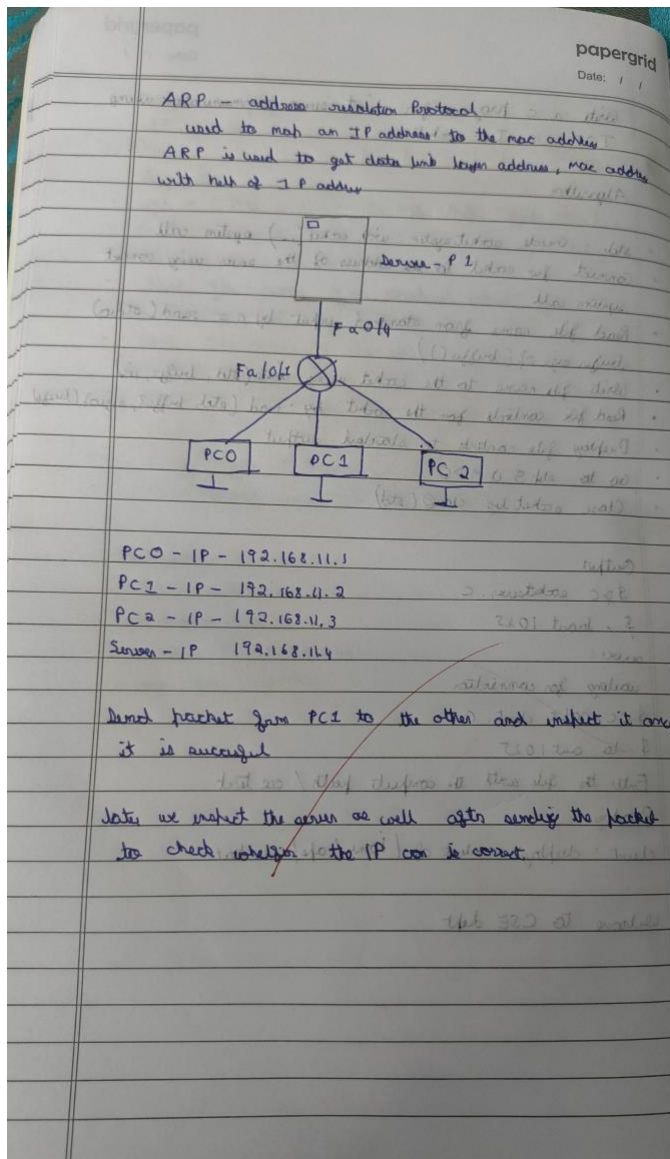 papergrid
Date: / /
ARP - address resolution Protocol
used to map an IP address to the mac address
ARP is used to get data link layer address, mac addres
with help of IP addres
Server - P1
Fa0/4
Fa/0/1
PC0
PC1
PC2
PC0 - IP - 192.168.11.1
PC1 - IP - 192.168.11.2
PC2 - IP - 192.168.11.3
Server - IP 192.168.11.4
Send packet from PC1 to the other and inspect it once
it is succesful
later we inspect the server as well after sending the packet
to check whether the IP con is correct